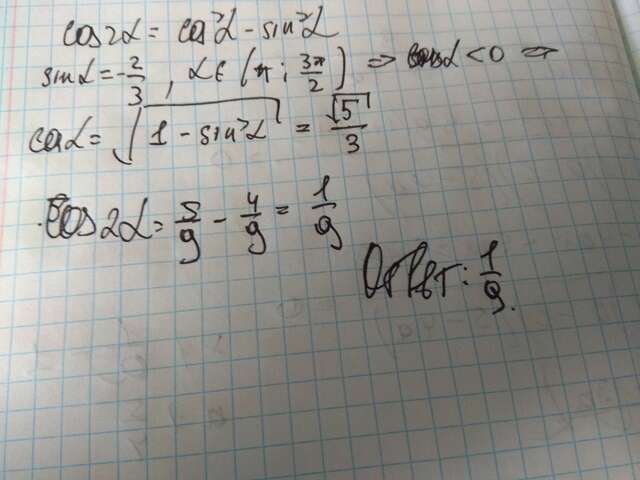 cos2α = cos²α - sin²α
sinα = -2/3, α ∈ (π; 3π/2) ⇒ cosα < 0 ⇒
cosα = √(1 - sin²α) = √5/3
cos2α = 5/9 - 4/9 = 1/9
Ответ: 1/9.